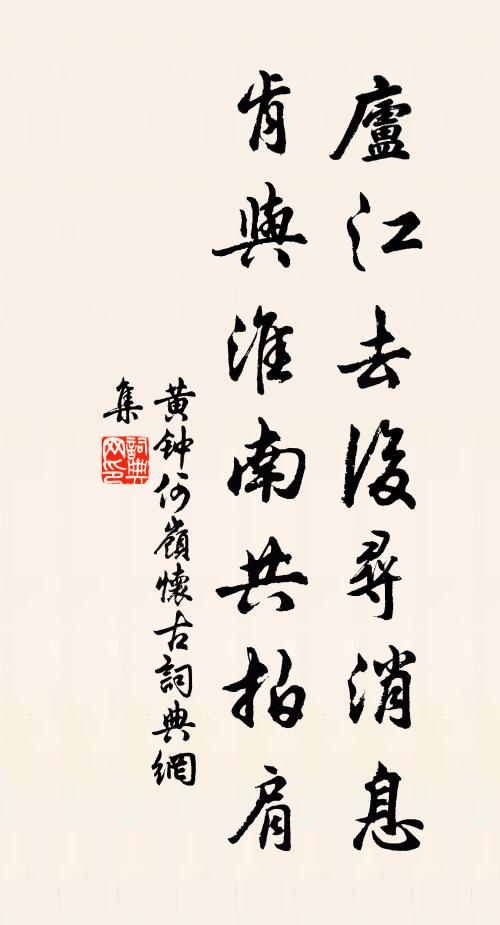 廬江去後尋消息
肯與淮南共拍肩
黄钟何嶺懷古詞典網
集
詞典網印